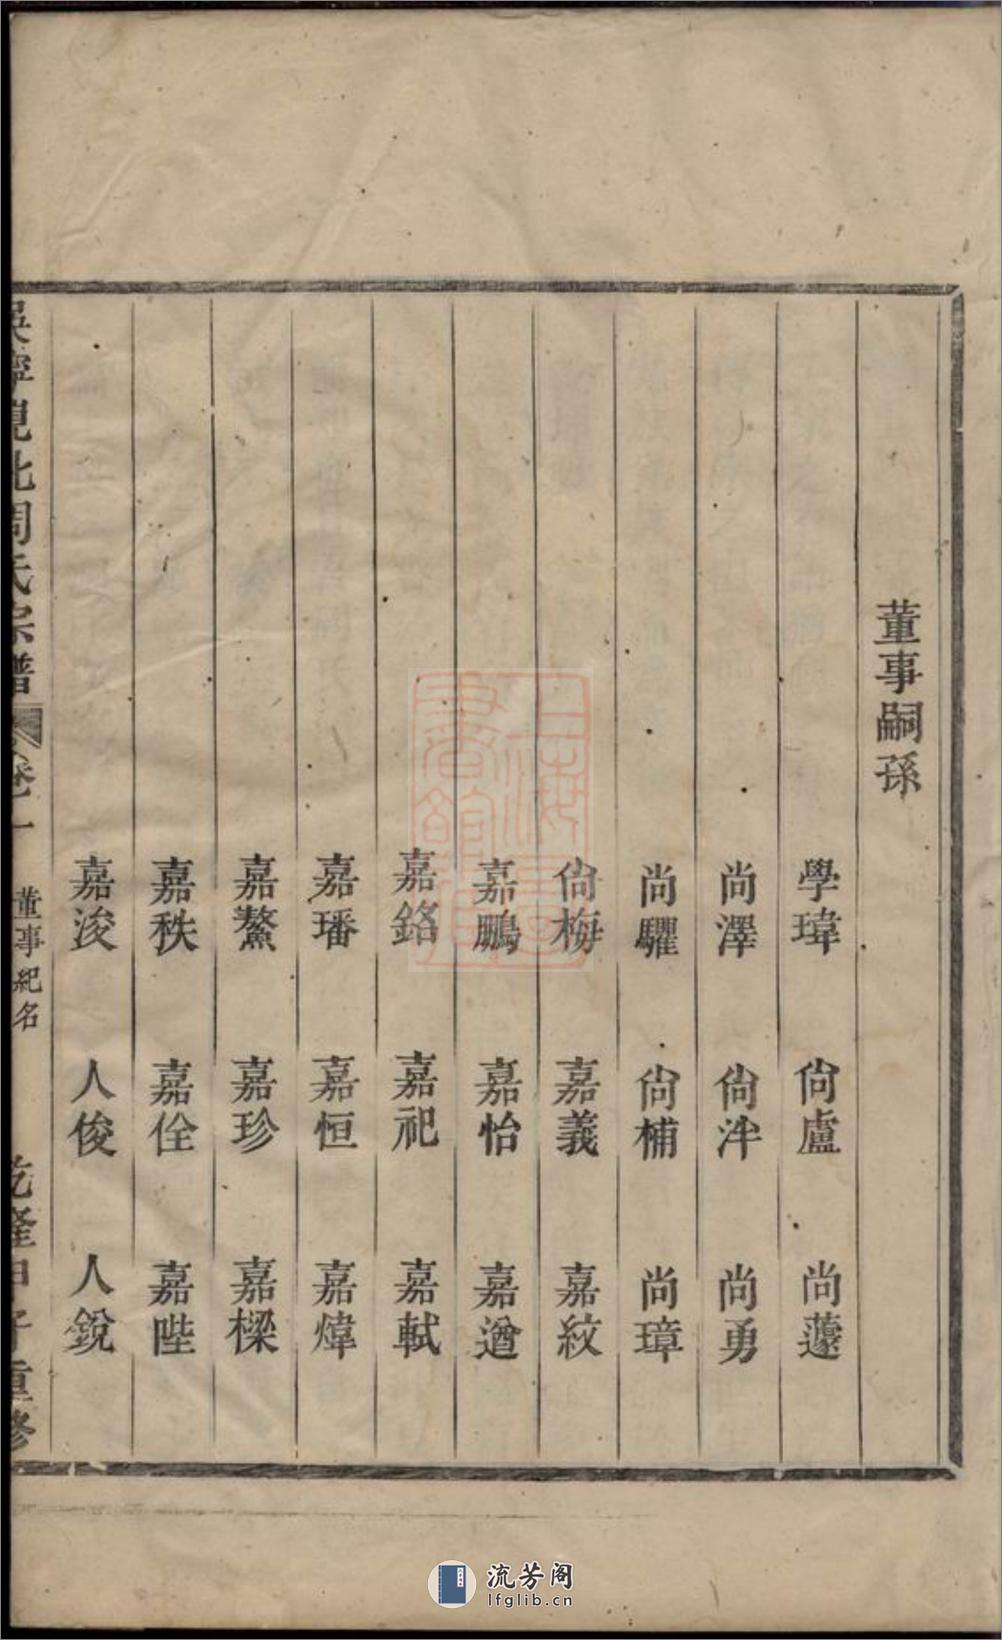 董事嗣孫
學瑋 尙盧 尚蘧
尚澤 尙泮 尚勇
尚驩 尙楠 尚璋
尙梅 嘉義 嘉紋
嘉鵬 嘉怡 嘉遒
嘉鉻 嘉祀 嘉軾
嘉璠 嘉恒 嘉煒
嘉鰲 嘉珍 嘉樑
嘉秩 嘉佺 嘉陛
嘉浚 人俊 人銳
吳寧峴北周氏宗譜 卷一 董事紀名 乾隆甲子重修
上海圖書館藏
流芳阁
lfglib.cn